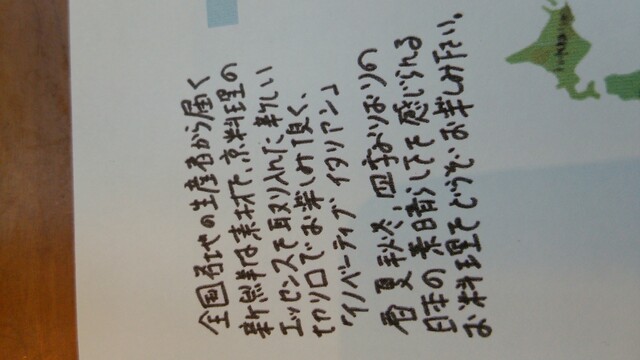 全国各地の生産者から届く
新鮮な素材で、京料理の
エッセンスで取り入れた新しい
切り口でお楽しみ頂く、
「イノベーティブ イタリアン」
春夏秋冬、四季おりおりの
日本の素晴らしさで感じられる
お料理でどうぞお楽しみ下さい。